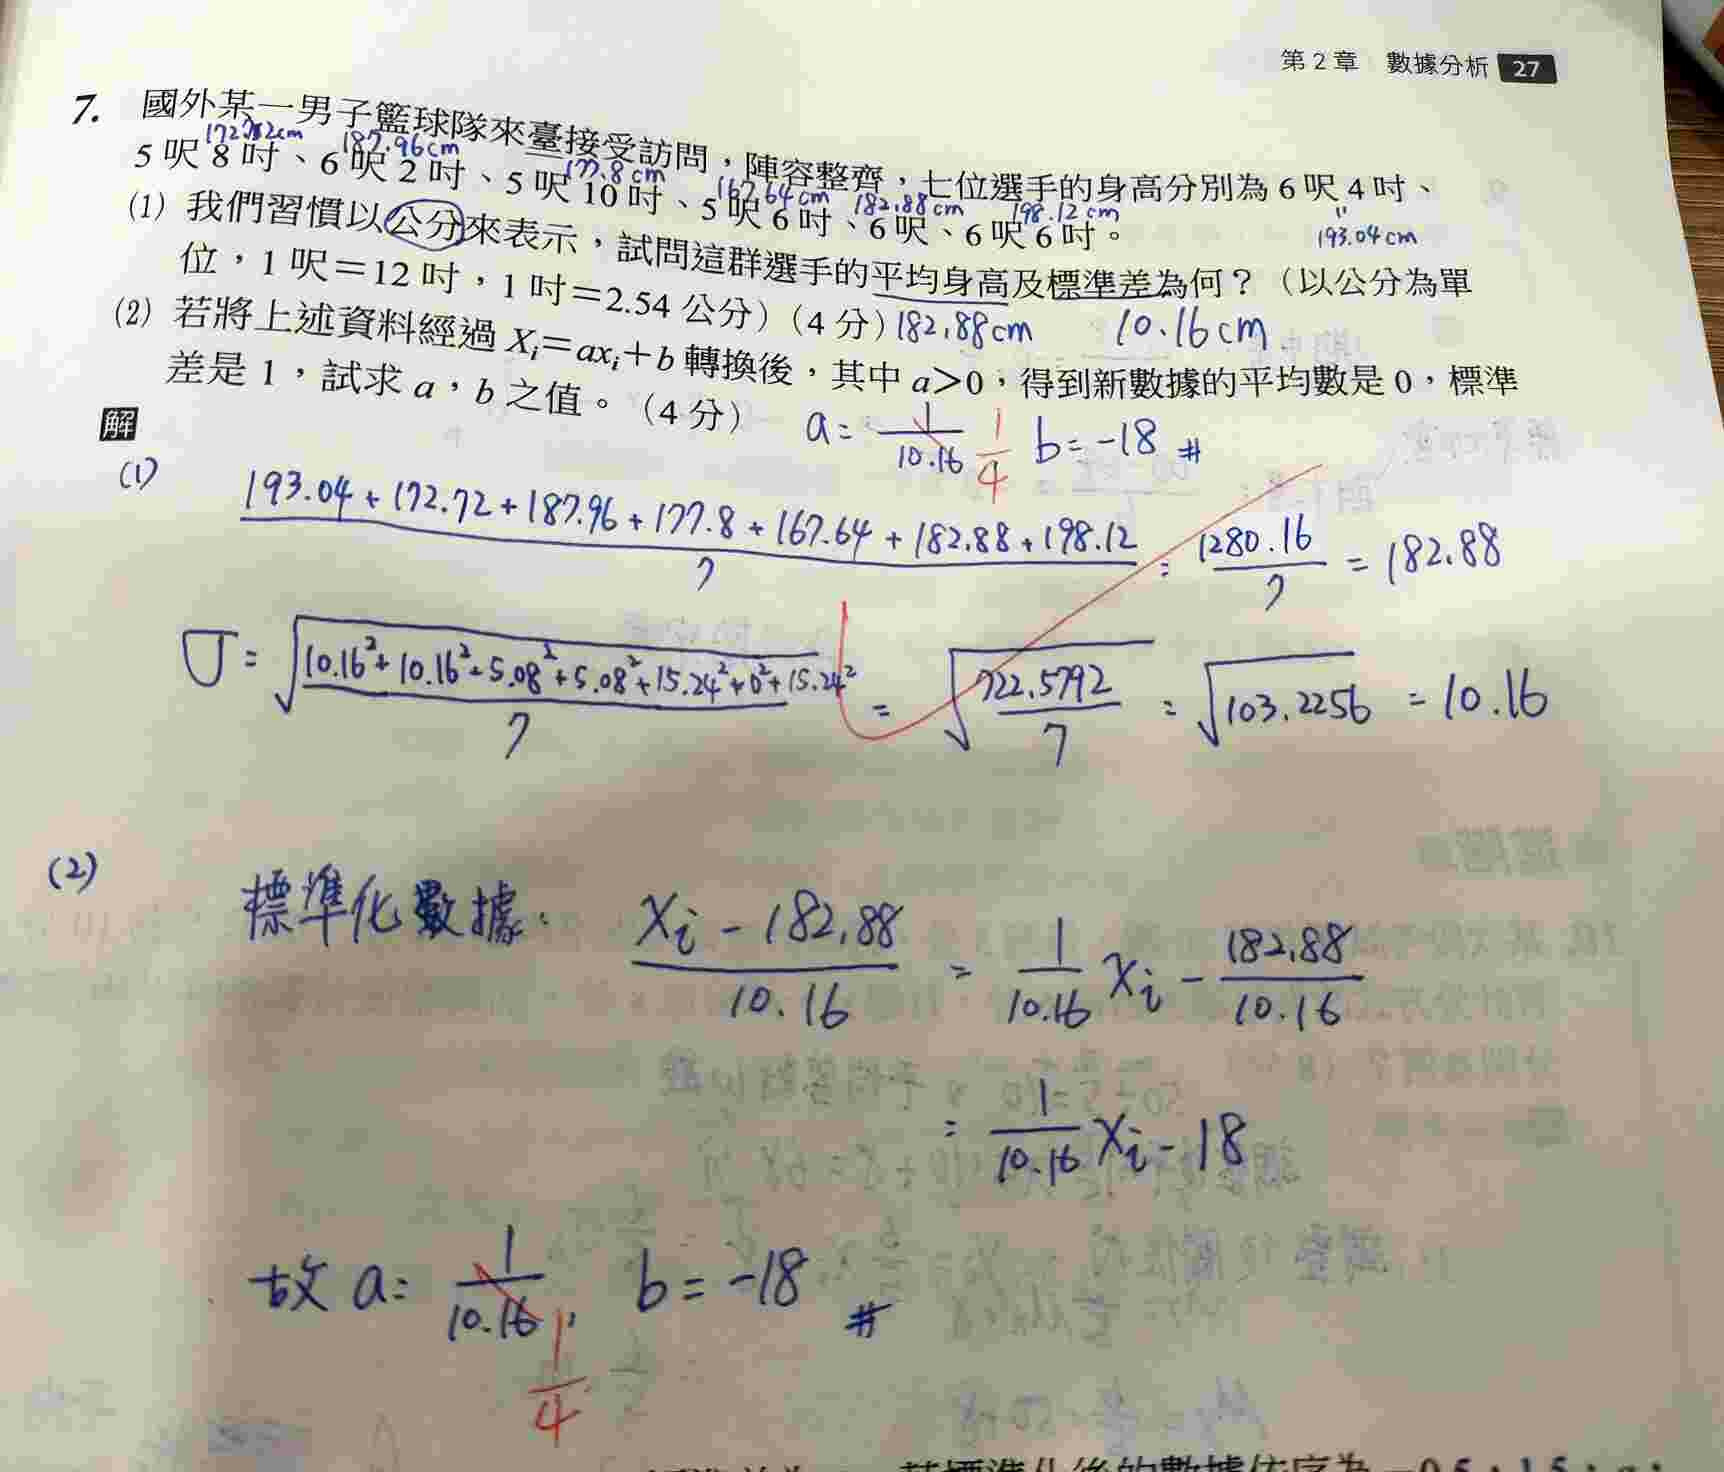 第2章 數據分析 27
7. 國外某一男子籃球隊來臺接受訪問，陣容整齊，七位選手的身高分別為6呎4吋、
193.04cm
172.72cm 187.96cm 177.8cm 167.64cm 182.88cm 198.12cm
5呎8吋、6呎2吋、5呎10吋、5呎6吋、6呎、6呎6吋。
(1) 我們習慣以公分來表示，試問這群選手的平均身高及標準差為何？（以公分為單
位，1呎＝12吋，1吋＝2.54公分）（4分）182.88cm 10.16cm
(2) 若將上述資料經過 Xi＝axi＋b 轉換後，其中 a＞0，得到新數據的平均數是0，標準
差是1，試求 a，b 之值。（4分） a = 1/10.16 1/4 b = -18 #
解
(1) (193.04 + 172.72 + 187.96 + 177.8 + 167.64 + 182.88 + 198.12)/7 = 1280.16/7 = 182.88
σ = √((10.16² + 10.16² + 5.08² + 5.08² + 15.24² + 0² + 15.24²)/7) = √(722.5792/7) = √103.2256 = 10.16
(2) 標準化數據: (xi - 182.88)/10.16 = 1/10.16 xi - 182.88/10.16
= 1/10.16 xi - 18
故 a = 1/10.16, b = -18 #
1/4